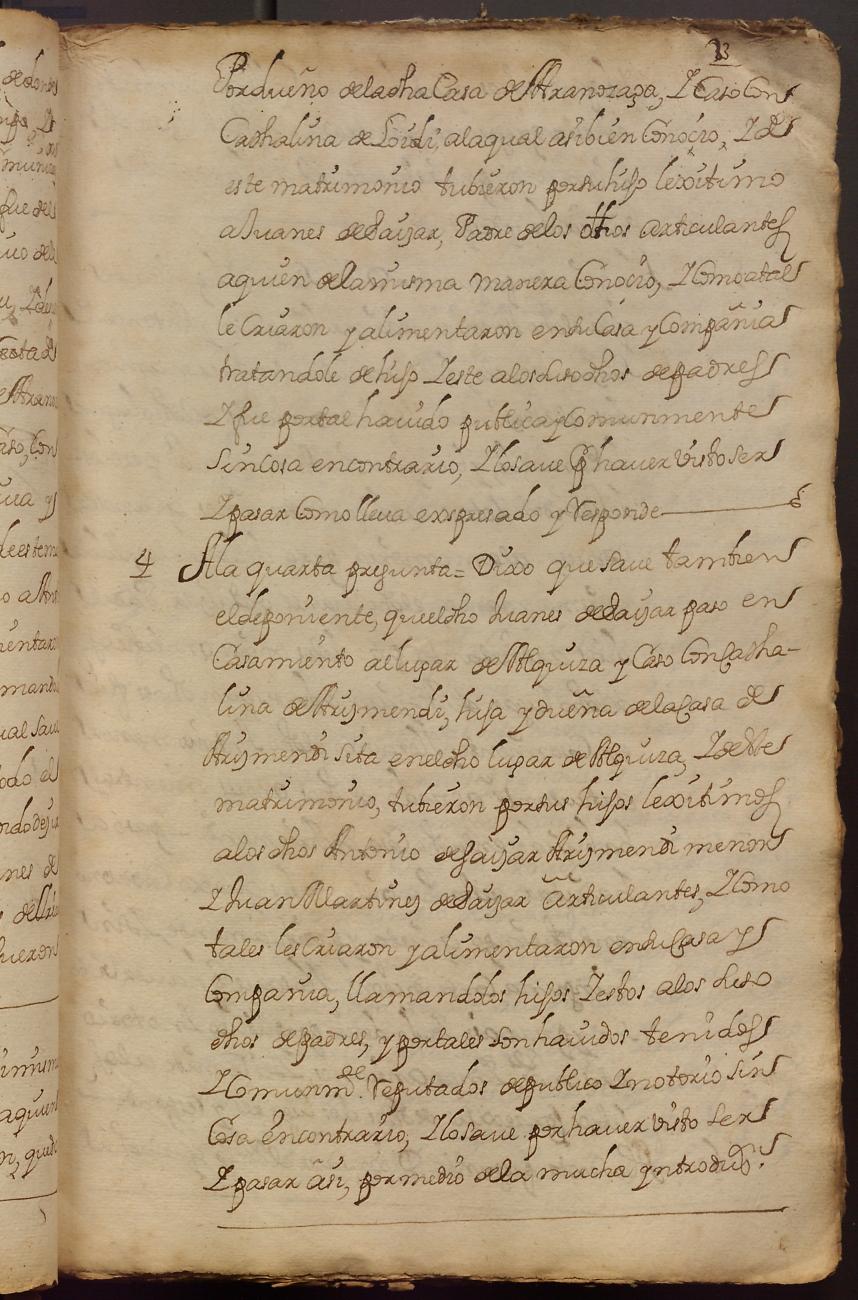 33
Por dueño de la dha Casa de Aranozaga, Y Caso Con
Cathalina de Loidi, a la qual asibien Conocio, Y de
este matrimonio tubieron por su hijo lexitimo
a Juanes de Saizar, Padre de los dhos articulantes
a quien de la misma manera Conocio, Y Como a tal
le Criaron y alimentaron en su Casa y Compañia
tratandole de hijo Y este a los susodhos de padres
Y fue por tal havido publica y Comunmente
sin Cosa en contrario, Y lo save por haver visto ser
Y pasar Como lleva expresado y Responde
4 A la quarta pregunta = Dixo que save tambien
el deponiente, que el dho Juanes de Saizar paso en
Casamiento al lugar de Alquiza y Caso Con Catha-
lina de Arijmendi, hija y dueña de la Casa de
Arijmendi sita en el dho lugar de Alquiza, Y de este
matrimonio, tubieron por sus hijos lexitimos
a los dhos Antonio de Saizar Arijmendi menor
Y Juan Martinez de Saizar articulantes, Y Como
tales les Criaron y alimentaron en su Casa y
Compañia, llamandolos hijos Y estos a los suso
dhos de padres, y por tales son havidos tenidos
Y Comunmde. Reputados de publico Y notorio sin
Cosa en contrario, Y lo save por haver visto ser
Y pasar asi, por medio de la mucha yntroduon.